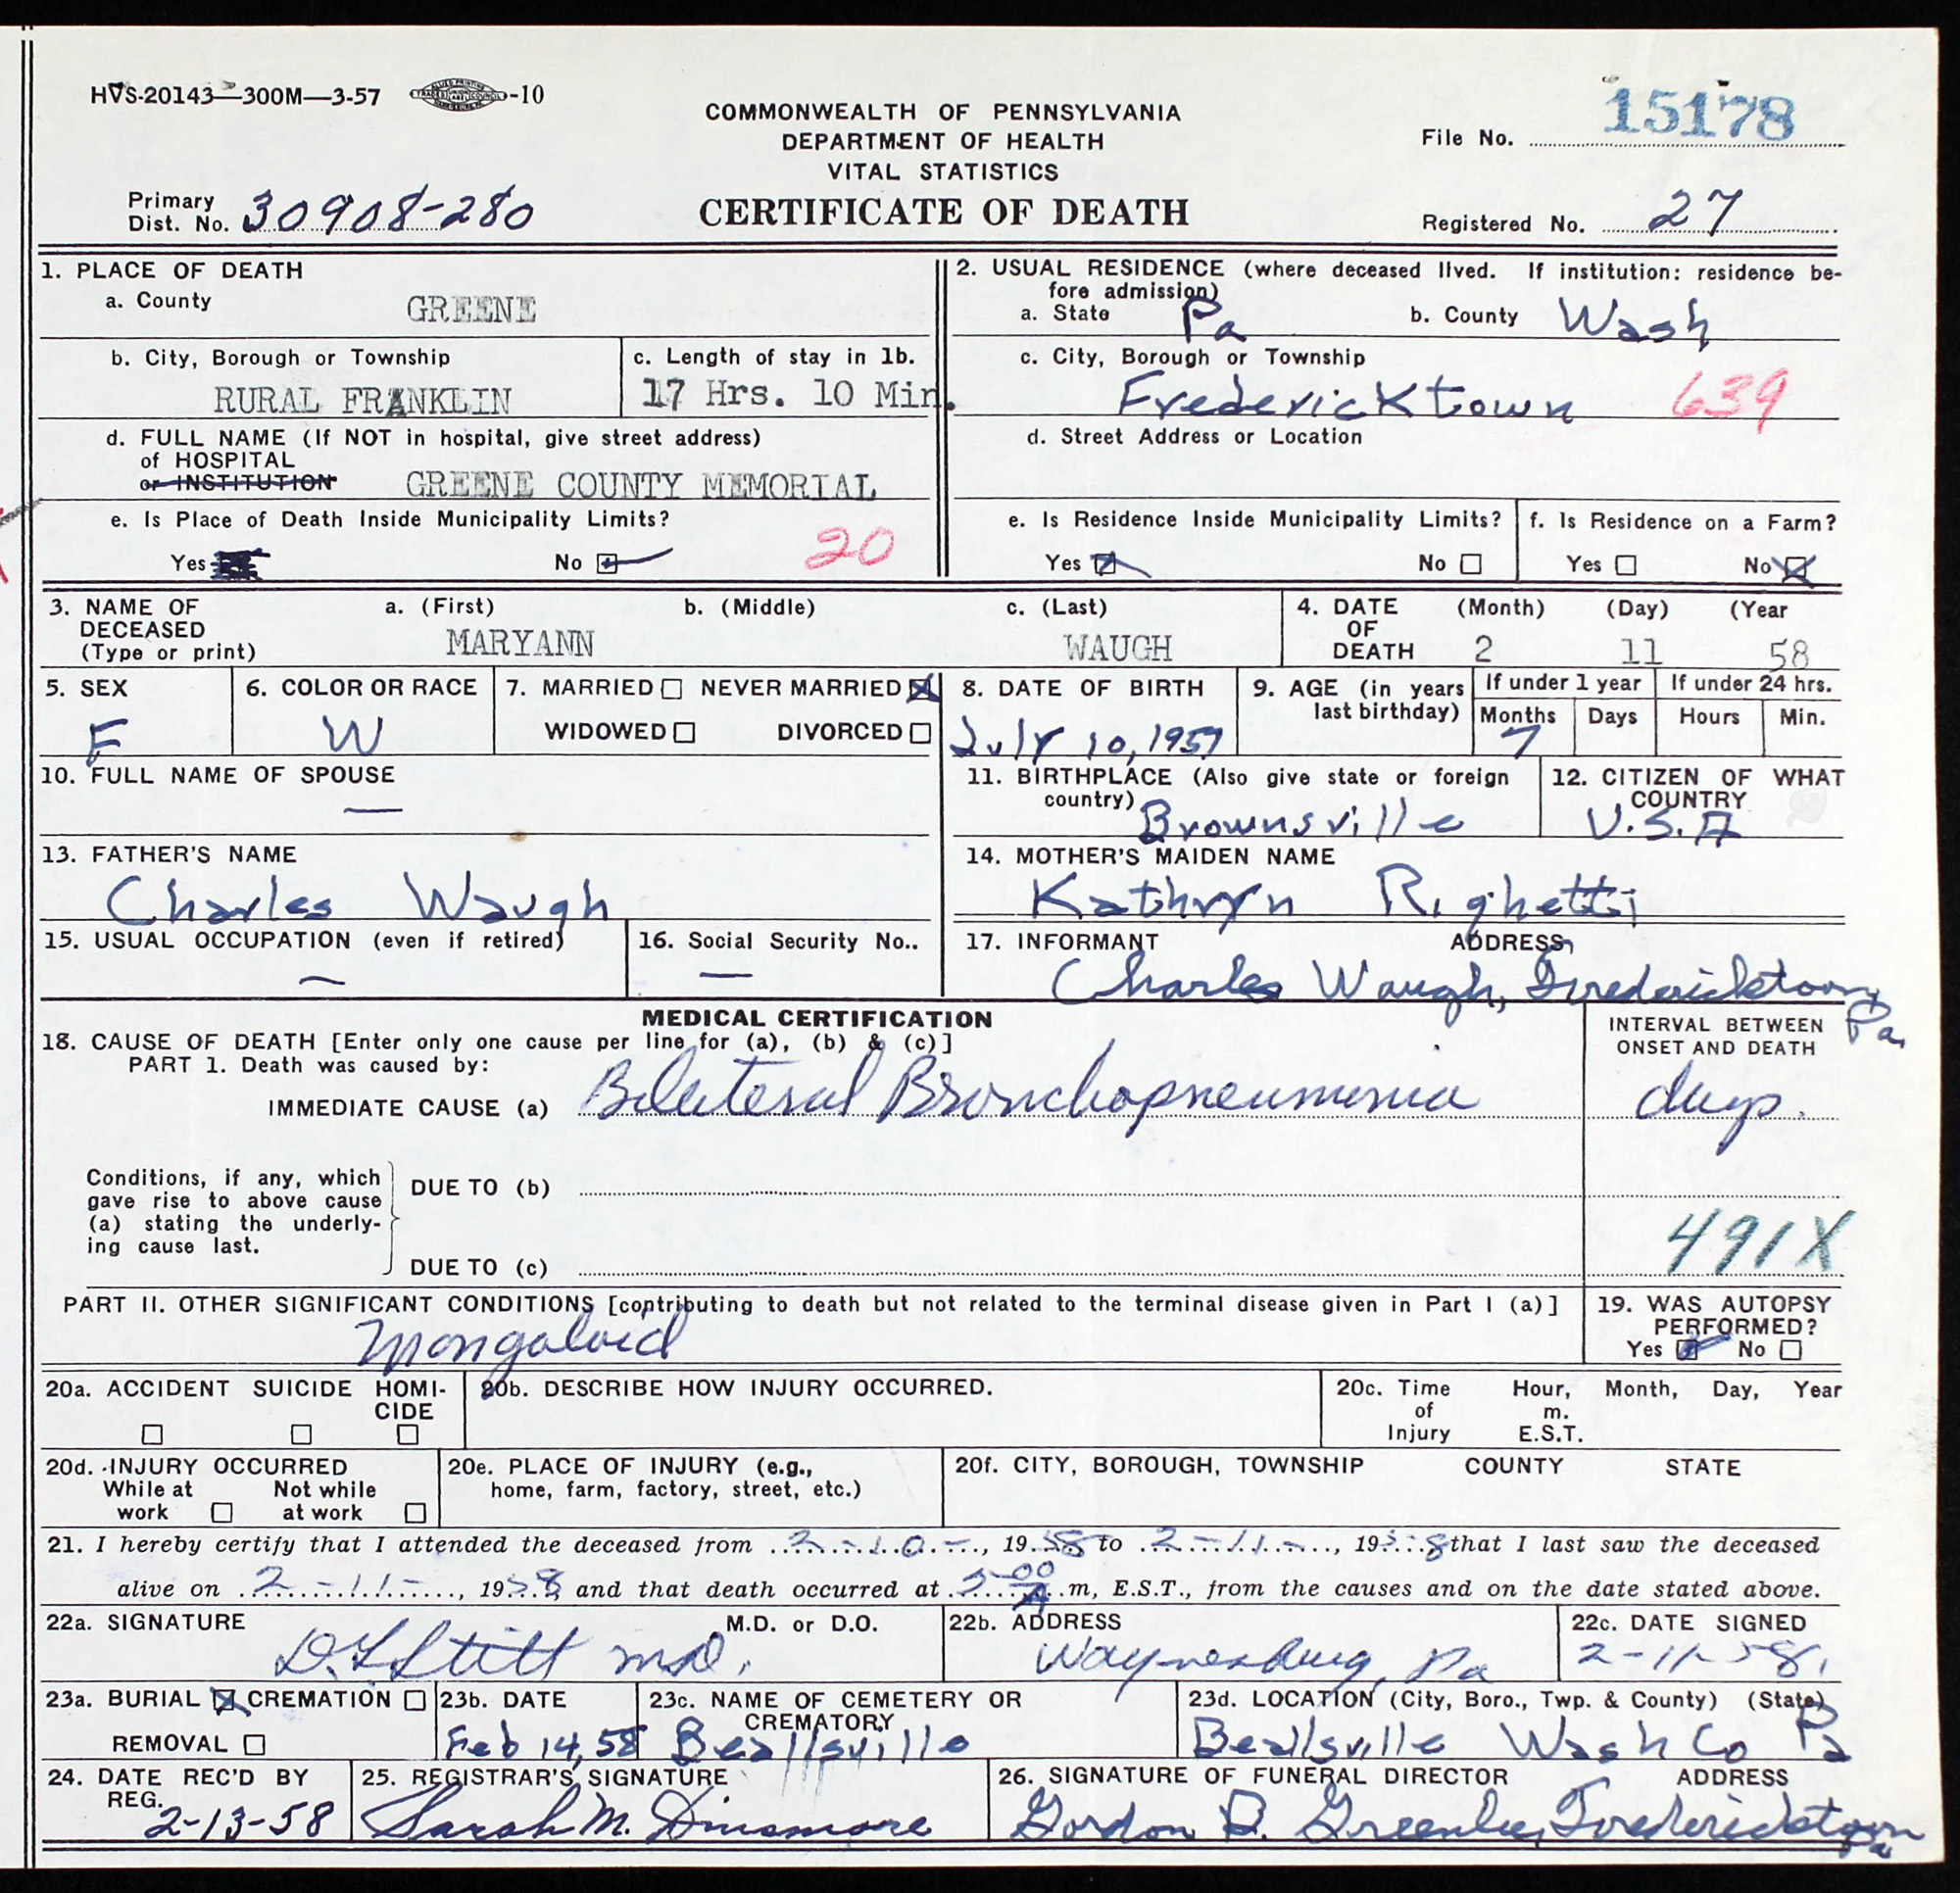 HVS-20143—300M—3-57 -10
COMMONWEALTH OF PENNSYLVANIA
DEPARTMENT OF HEALTH
VITAL STATISTICS
CERTIFICATE OF DEATH
File No. 15178
Primary
Dist. No. 30908-280
Registered No. 27
1. PLACE OF DEATH
a. County GREENE
b. City, Borough or Township
RURAL FRANKLIN
c. Length of stay in 1b.
17 Hrs. 10 Min.
d. FULL NAME (If NOT in hospital, give street address)
of HOSPITAL
or INSTITUTION GREENE COUNTY MEMORIAL
e. Is Place of Death Inside Municipality Limits?
Yes No 20
2. USUAL RESIDENCE (where deceased lived. If institution: residence be-
fore admission)
a. State Pa b. County Wash
c. City, Borough or Township
Fredericktown 639
d. Street Address or Location
e. Is Residence Inside Municipality Limits?
Yes No
f. Is Residence on a Farm?
Yes No
3. NAME OF DECEASED (Type or print)
a. (First) b. (Middle) c. (Last)
MARYANN WAUGH
4. DATE OF DEATH
(Month) (Day) (Year
2 11 58
5. SEX
F
6. COLOR OR RACE
W
7. MARRIED NEVER MARRIED
WIDOWED DIVORCED
8. DATE OF BIRTH
July 10, 1957
9. AGE (in years
last birthday)
If under 1 year If under 24 hrs.
Months Days Hours Min.
7
10. FULL NAME OF SPOUSE
—
11. BIRTHPLACE (Also give state or foreign
country) Brownsville
12. CITIZEN OF WHAT
COUNTRY
U.S.A
13. FATHER'S NAME
Charles Waugh
14. MOTHER'S MAIDEN NAME
Kathryn Righetti
15. USUAL OCCUPATION (even if retired)
—
16. Social Security No..
—
17. INFORMANT ADDRESS
Charles Waugh, Fredericktown
Pa.
MEDICAL CERTIFICATION
18. CAUSE OF DEATH [Enter only one cause per line for (a), (b) & (c)]
PART 1. Death was caused by:
INTERVAL BETWEEN
ONSET AND DEATH
IMMEDIATE CAUSE (a) Bilateral Bronchopneumonia days.
Conditions, if any, which
gave rise to above cause
(a) stating the underly-
ing cause last.
DUE TO (b)
DUE TO (c)
491X
PART II. OTHER SIGNIFICANT CONDITIONS [contributing to death but not related to the terminal disease given in Part I (a)]
Mongoloid
19. WAS AUTOPSY
PERFORMED?
Yes No
20a. ACCIDENT SUICIDE HOMI-
CIDE
20b. DESCRIBE HOW INJURY OCCURRED.
20c. Time of Injury
Hour, Month, Day, Year
m.
E.S.T.
20d. INJURY OCCURRED
While at work Not while at work
20e. PLACE OF INJURY (e.g.,
home, farm, factory, street, etc.)
20f. CITY, BOROUGH, TOWNSHIP COUNTY STATE
21. I hereby certify that I attended the deceased from 2-10-, 1958 to 2-11-, 1958 that I last saw the deceased
alive on 2-11-, 1958 and that death occurred at 5:00 A m, E.S.T., from the causes and on the date stated above.
22a. SIGNATURE M.D. or D.O.
Stitt MD.
22b. ADDRESS
Waynesburg, Pa
22c. DATE SIGNED
2-11-58.
23a. BURIAL CREMATION
REMOVAL
23b. DATE
Feb 14, 58
23c. NAME OF CEMETERY OR
CREMATORY
Beallsville
23d. LOCATION (City, Boro., Twp. & County) (State)
Beallsville Wash Co Pa
24. DATE REC'D BY
REG.
2-13-58
25. REGISTRAR'S SIGNATURE
Sarah M. Dinsmore
26. SIGNATURE OF FUNERAL DIRECTOR ADDRESS
Gordon B. Greenlee, Fredericktown
Pa